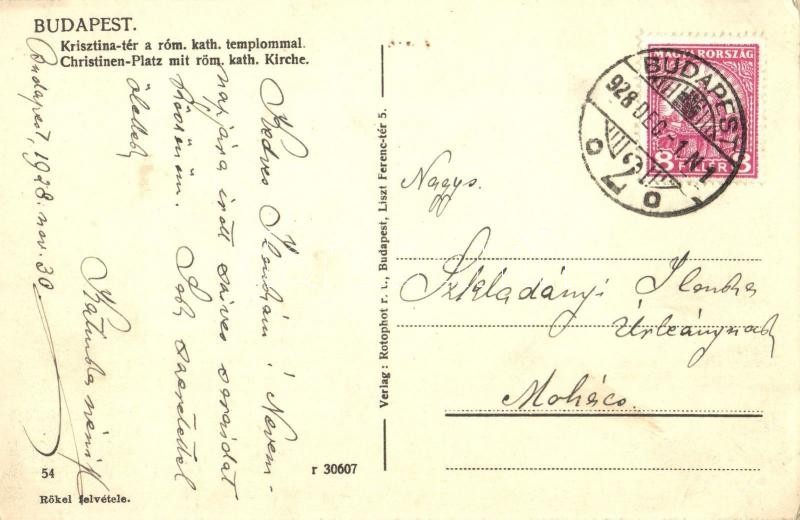 BUDAPEST.
Krisztina-tér a róm. kath. templommal.
Christinen-Platz mit röm. kath. Kirche.
Budapest, 1928. nov. 30.
Kedves Ilonkám! Nevem-
napjára írott szíves soraidat
köszönöm. Sok szeretettel
ölellek
Katinka néni
54
r 30607
Rökel felvétele.
Verlag: Rotophot r. t., Budapest, Liszt Ferenc-tér 5.
MAGYARORSZÁG
8 FILLÉR 8
BUDAPEST
928 DEC. 1. N 1
2
Nagys.
Szkladányi Ilonka
Úrleánynak
Mohács.